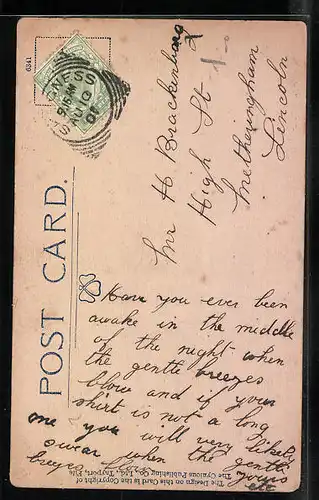 POST CARD.
Mr H Brackenbury
High St
Metheringham
Lincoln
Have you ever been
awake in the middle
of the night when
the gentle breezes
blow and if your
shirt is not a long
one you will very likely
swear when the gentle
breezes
yours
The Design on this Card is the Copyright of
The Cynicus Publishing Co., Ltd., Tayport, Fife.